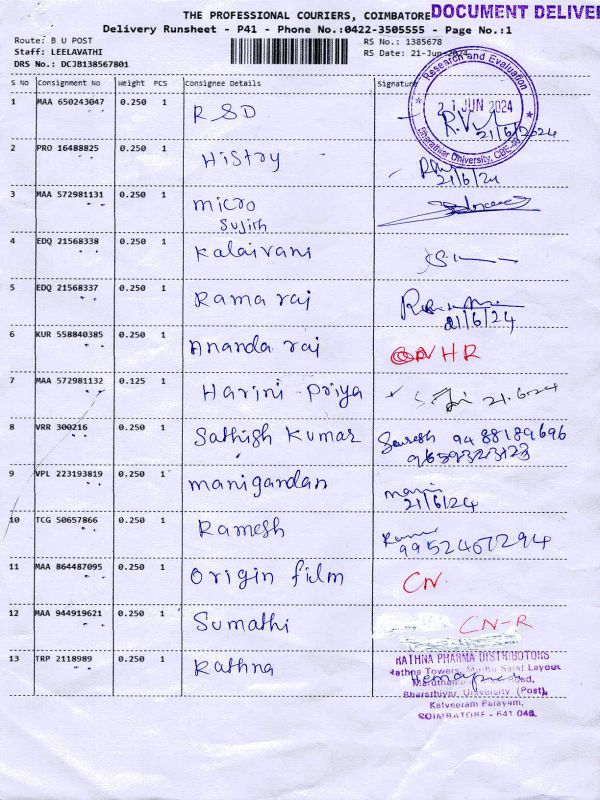 THE PROFESSIONAL COURIERS, COIMBATORE
DOCUMENT DELIVER
Delivery Runsheet - P41 - Phone No.:0422-3505555 - Page No.:1
Route: B U POST
RS No.: 1385678
Staff: LEELAVATHI
RS Date: 21-Jun-2024
DRS No.: DCJB138567801
S No Consignment No Weight PCS Consignee Details Signature
Research and Evaluation
21 JUN 2024
Bharathiar University, CBE-46
1 MAA 650243047 0.250 1 RSD 21/6/2024
2 PRO 16488825 0.250 1 History
21/6/24
3 MAA 572981131 0.250 1 micro
Sujith
4 EDQ 21568338 0.250 1 Kalaivani
5 EDQ 21568337 0.250 1 Rama raj
21/6/24
6 KUR 558840385 0.250 1 Ananda raj NHR
7 MAA 572981132 0.125 1 Harini Priya 21.6.24
8 VRR 300216 0.250 1 Sathish Kumar Suresh 9488189696
9659323123
9 VPL 223193819 0.250 1 manigandan mani
21/6/24
10 TCG 50657866 0.250 1 Ramesh
9952467294
11 MAA 864487095 0.250 1 Origin film CN.
12 MAA 944919621 0.250 1 Sumathi CN-R
13 TRP 2118989 0.250 1 Rathna
RATHNA PHARMA DISTRIBUTORS
Rathna Towers, Layout
Bharathiyar, University (Post),
Kalveeram Palayam,
COIMBATORE - 641 046.